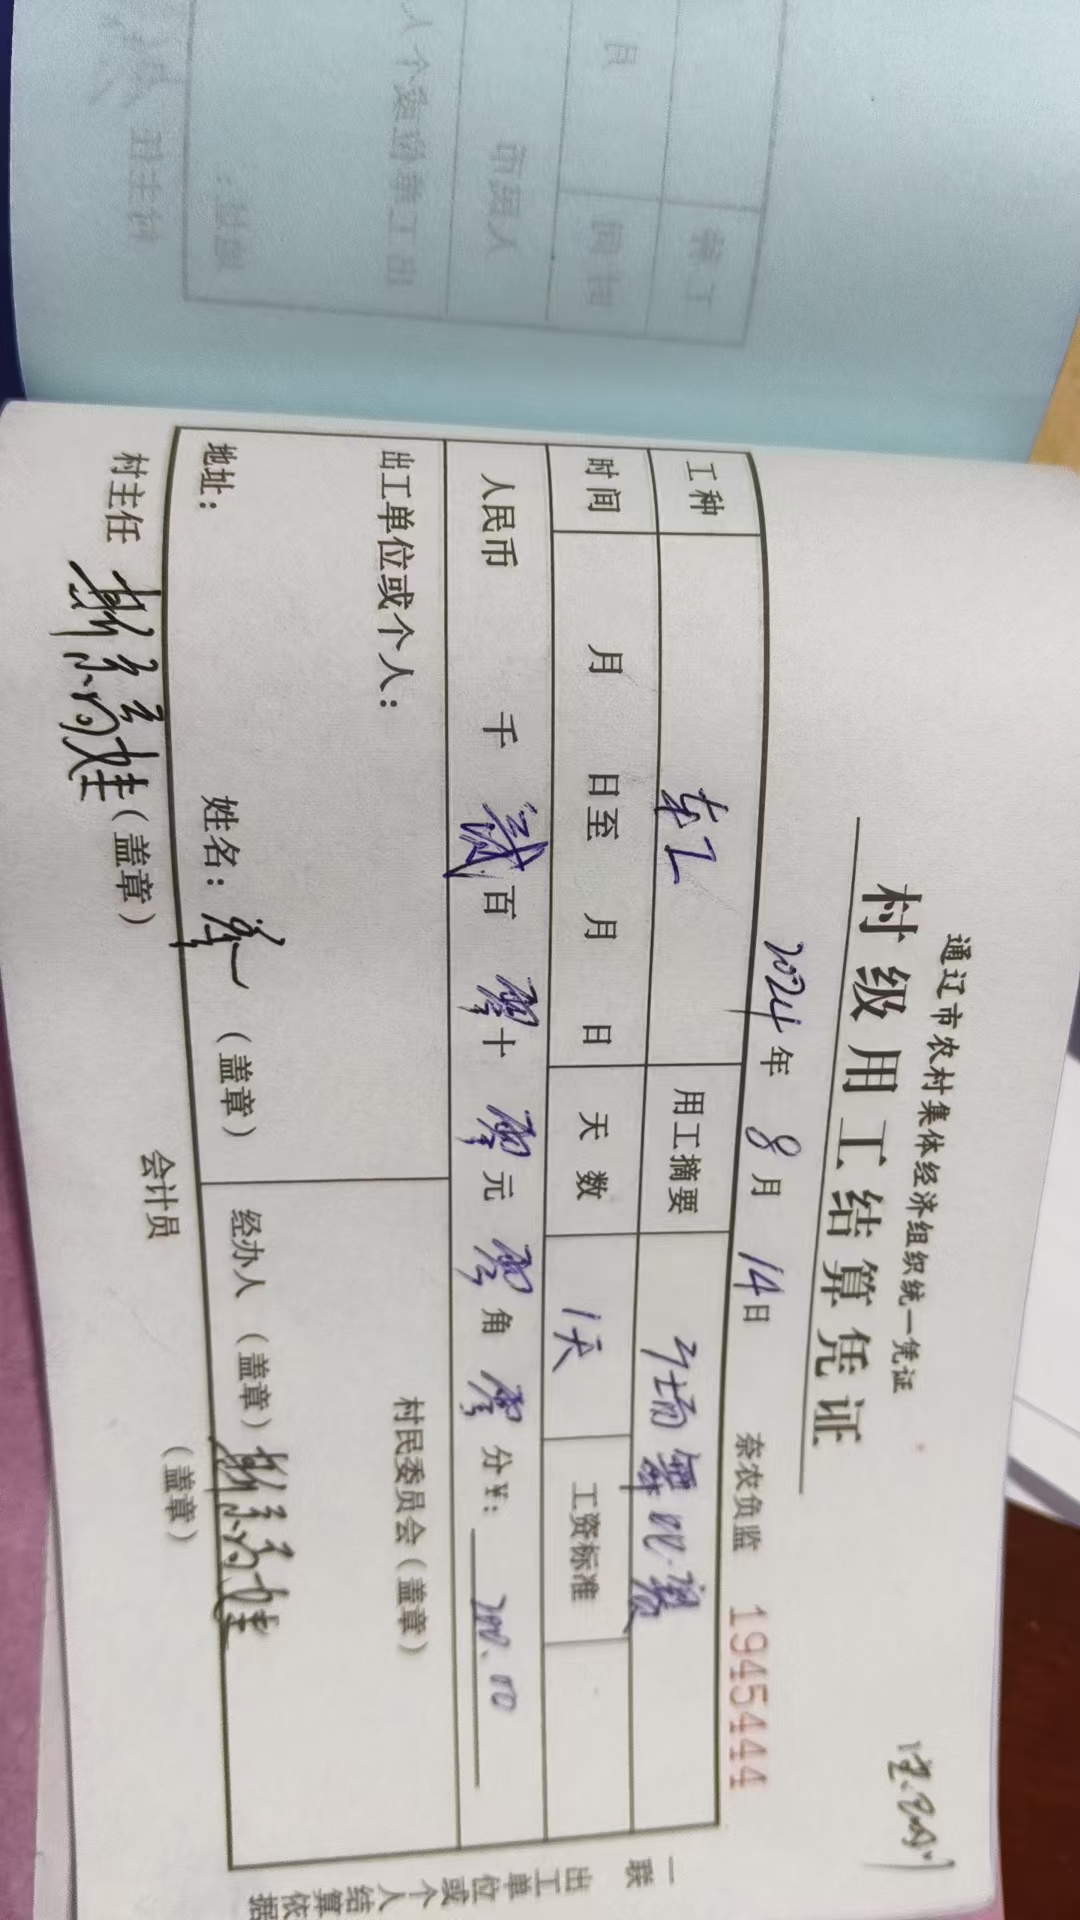 通辽市农村集体经济组织统一凭证
村级用工结算凭证
2024年 8月 14日 奈农负监 1945444
工种 车工 用工摘要
时间 月 日至 月 日 天数 1天 工资标准
人民币 千 贰百 零十 零元 零角 零分 ¥: 200.00
出工单位或个人: 村民委员会(盖章)
地址: 姓名: (盖章) 经办人(盖章)
村主任 (盖章) 会计员 (盖章)
一联 出工单位或个人结算依据
工种
时间 日
人民币
出工单位或个人
地址:
村主任